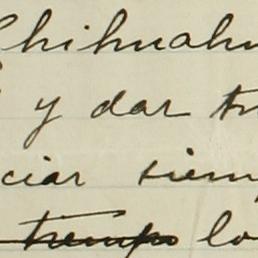 Chihuahu
y dar tr
ciar siem
tiempo lo